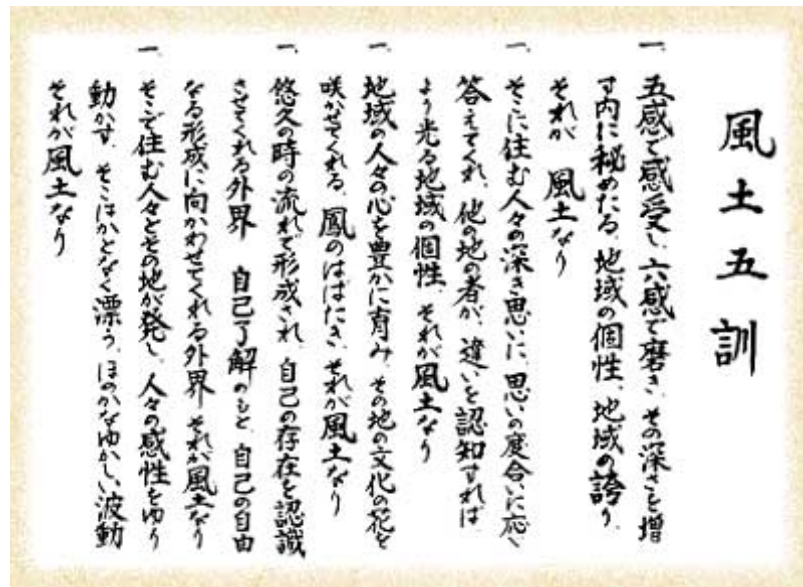 風土五訓
一、五感で感受し、六感で磨き、その深さを増
す内に秘めたる、地域の個性、地域の誇り、
それが 風土なり
一、そこに住む人々の深き思いに、思いの度合いに応へ
答えてくれ、他の地の者が、違いを認知すれば
より光る地域の個性、それが風土なり
一、地域の人々の心を豊かに育み、その地の文化の花を
咲かせてくれる、鳳のはばたき、それが風土なり
一、悠久の時の流れで形成され、自己の存在を認識
させてくれる外界 自己了解のもと、自己の自由
なる形成に向かわせてくれる外界 それが風土なり
一、そこで住む人々とその地が発し、人々の感性をゆり
動かす、そこはかとなく漂う、ほのかなゆかしい波動
それが風土なり